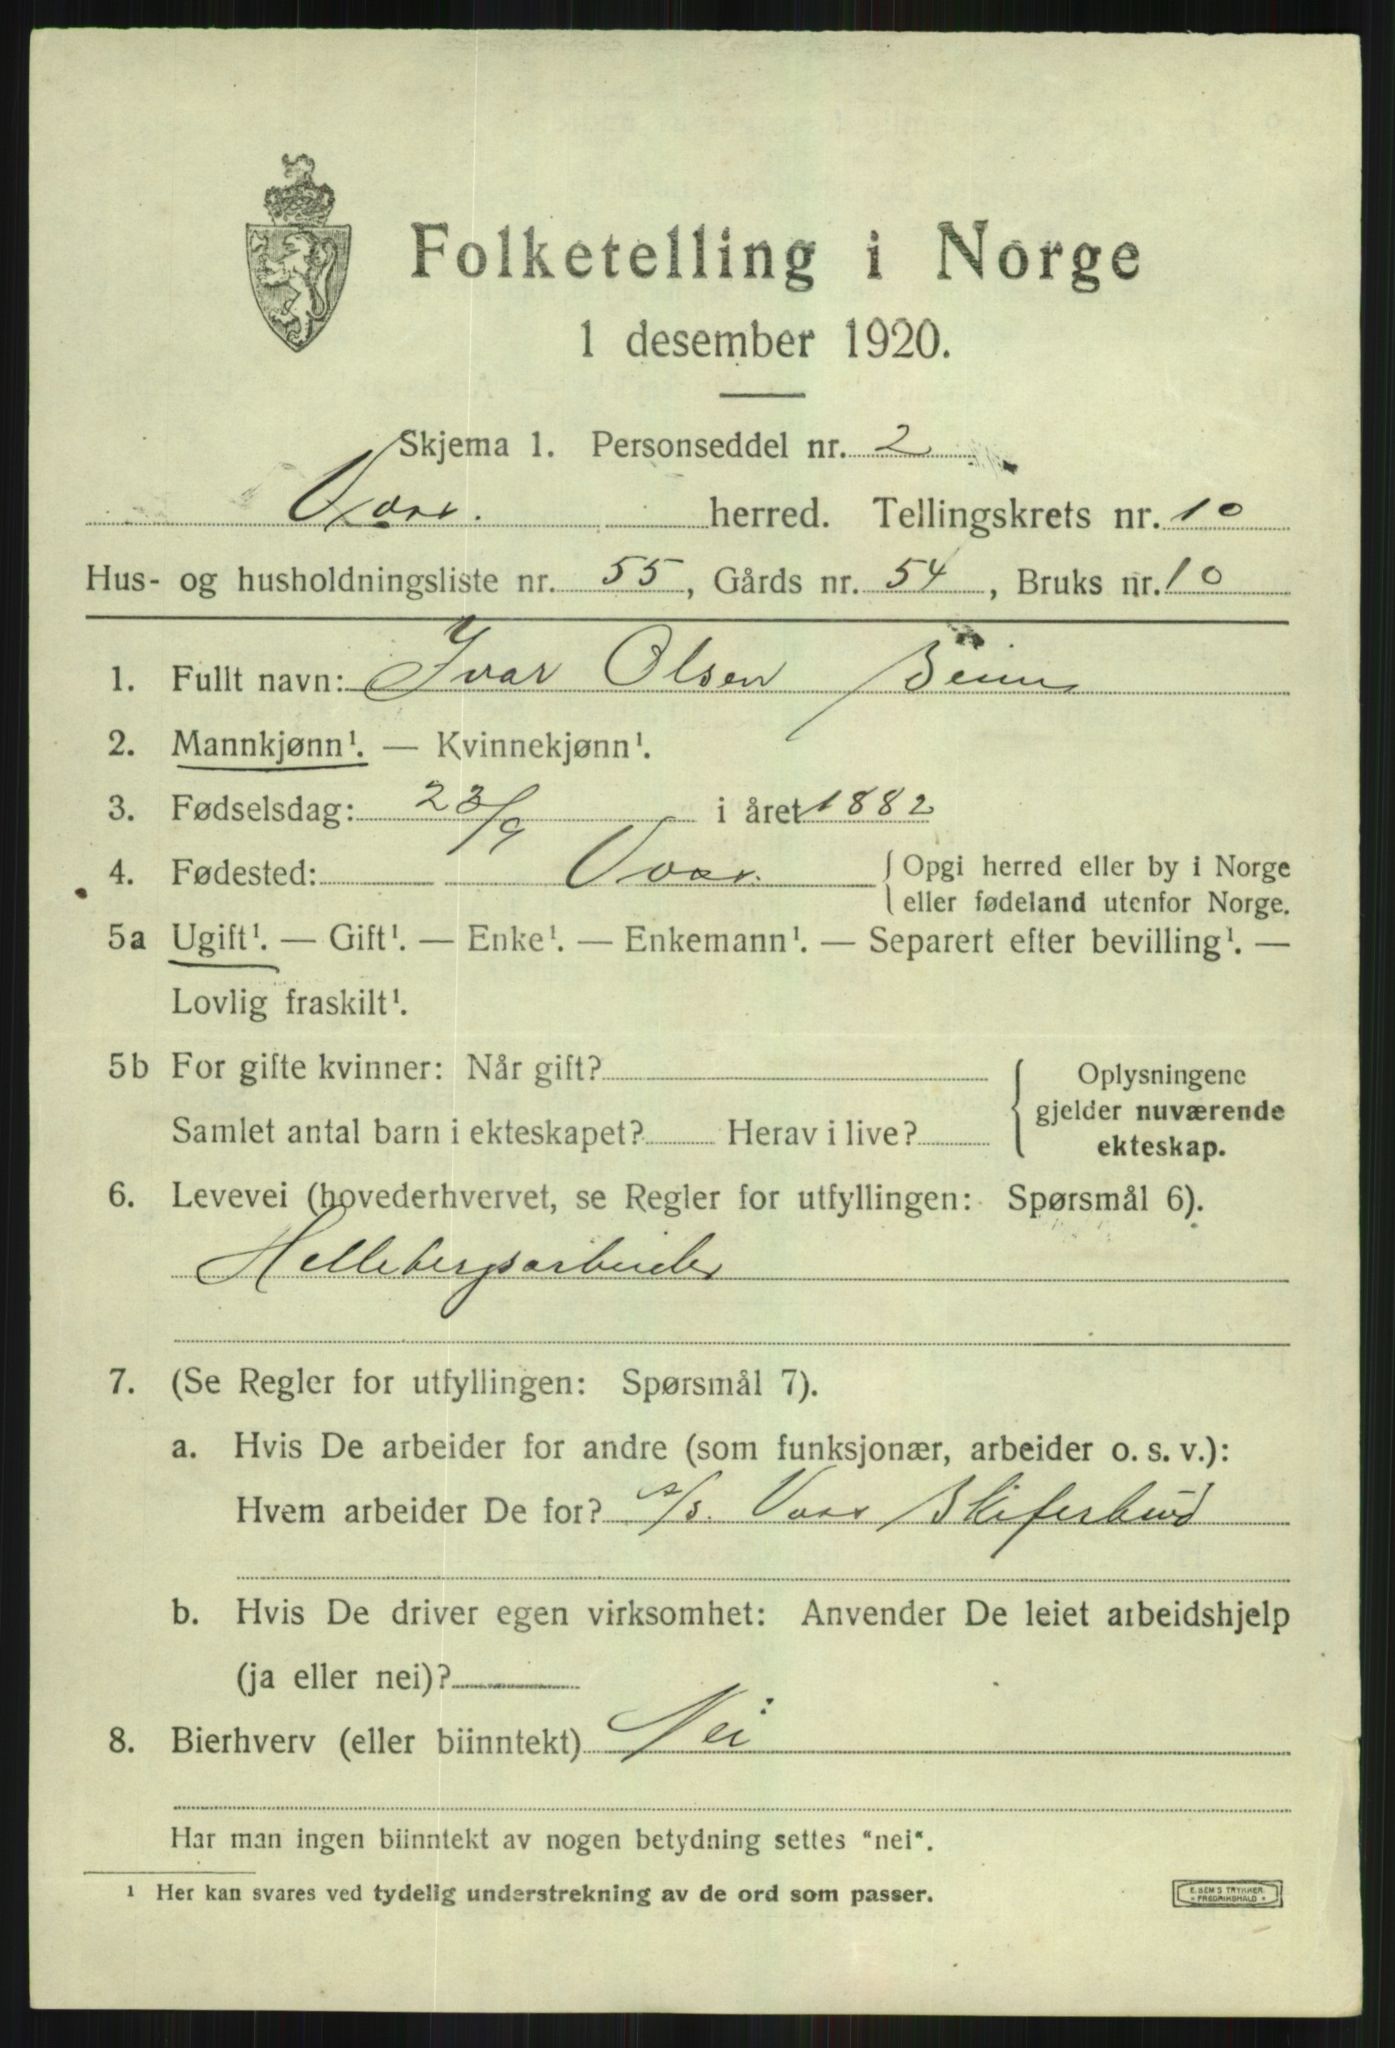 Folketelling i Norge
1 desember 1920.
Skjema 1. Personseddel nr. 2
Voss. herred. Tellingskrets nr. 10
Hus- og husholdningsliste nr. 55, Gårds nr. 54, Bruks nr. 10
1. Fullt navn: Ivar Olsen
2. Mannkjønn¹. — Kvinnekjønn¹.
3. Fødselsdag: 23/9 i året 1882
4. Fødested: Voss. { Opgi herred eller by i Norge
eller fødeland utenfor Norge.
5a Ugift¹. — Gift¹. — Enke¹. — Enkemann¹. — Separert efter bevilling¹. —
Lovlig fraskilt¹.
5b For gifte kvinner: Når gift?
Samlet antal barn i ekteskapet? Herav i live?
{ Oplysningene
gjelder nuværende
ekteskap.
6. Levevei (hovederhvervet, se Regler for utfyllingen: Spørsmål 6).
Hellebergsarbeider
7. (Se Regler for utfyllingen: Spørsmål 7).
a. Hvis De arbeider for andre (som funksjonær, arbeider o. s. v.):
Hvem arbeider De for? A/S. Voss Skiferbrud
b. Hvis De driver egen virksomhet: Anvender De leiet arbeidshjelp
(ja eller nei)?
8. Bierhverv (eller biinntekt) Nei
Har man ingen biinntekt av nogen betydning settes "nei".
¹ Her kan svares ved tydelig understrekning av de ord som passer.
E. SEM'S TRYKKERI
FREDRIKSHALD